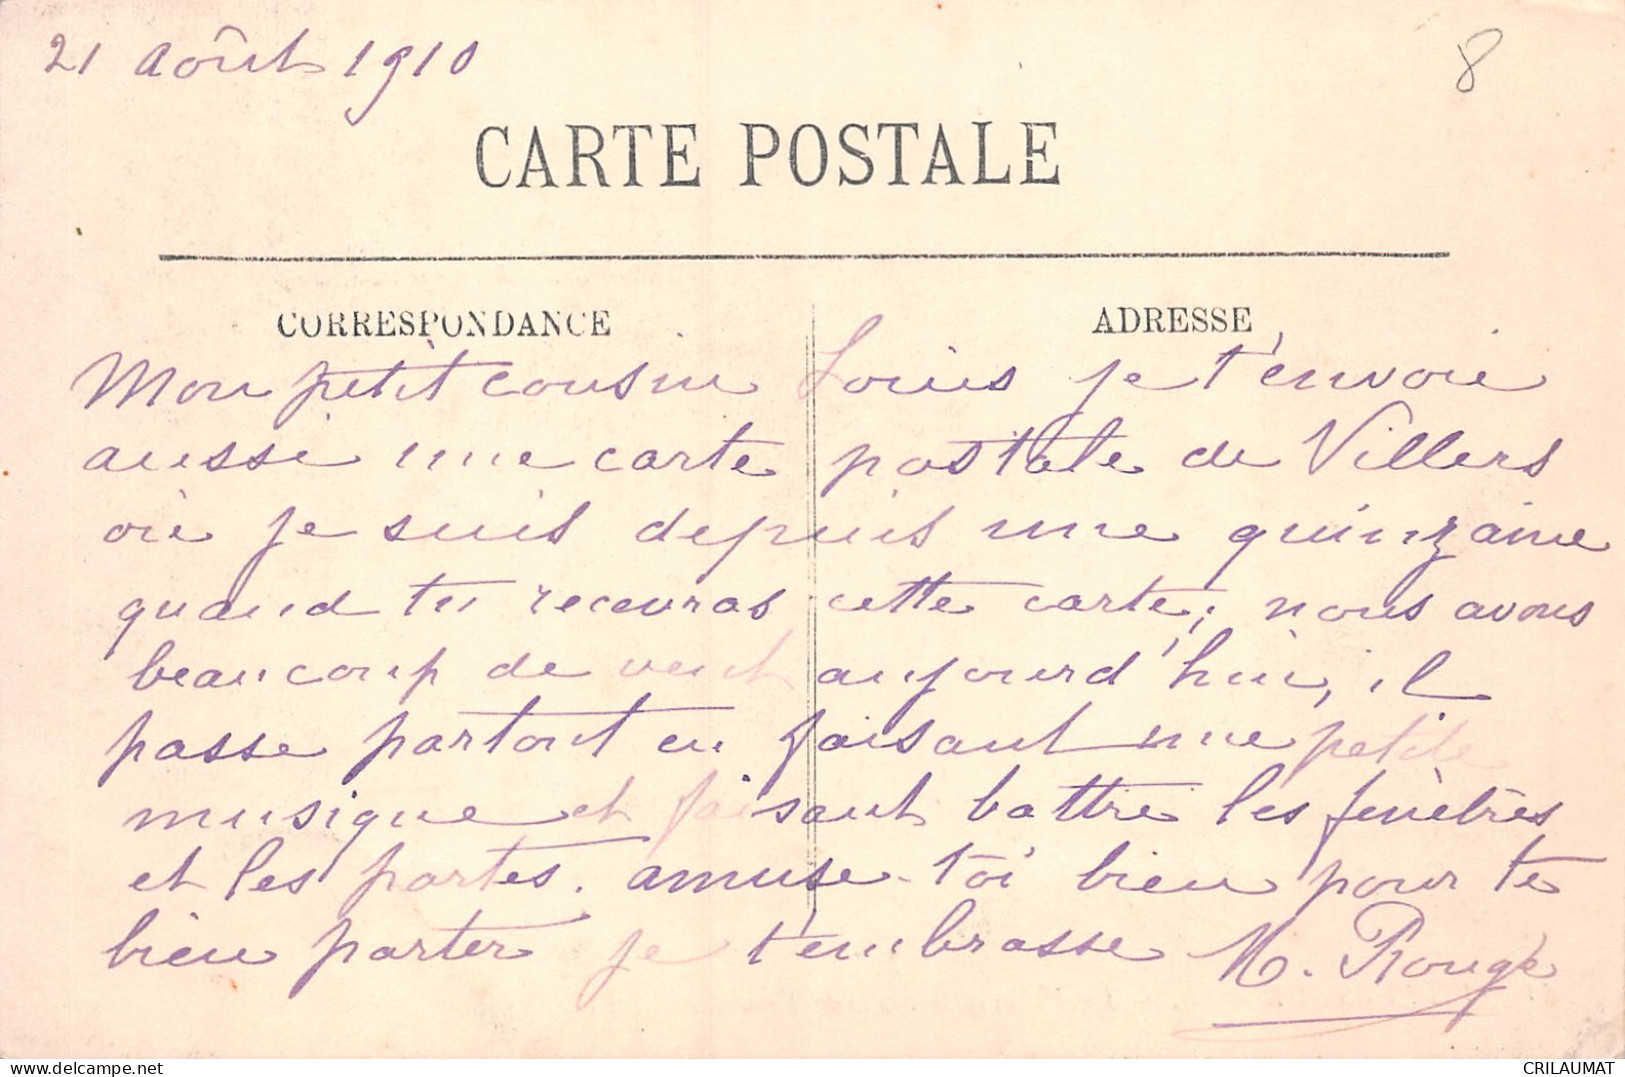 21 Août 1910
8
CARTE POSTALE
CORRESPONDANCE
ADRESSE
Mon petit cousin Louis je t'envoie
aussi une carte postale de Villers
où je suis depuis une quinzaine
quand tu recevras cette carte; nous avons
beaucoup de vent aujourd'hui, il
passe partout en faisant une petite
musique et faisant battre les fenêtres
et les portes. amuse-toi bien pour te
bien porter je t'embrasse M. Rougé
delcampe.net
CRILAUMAT